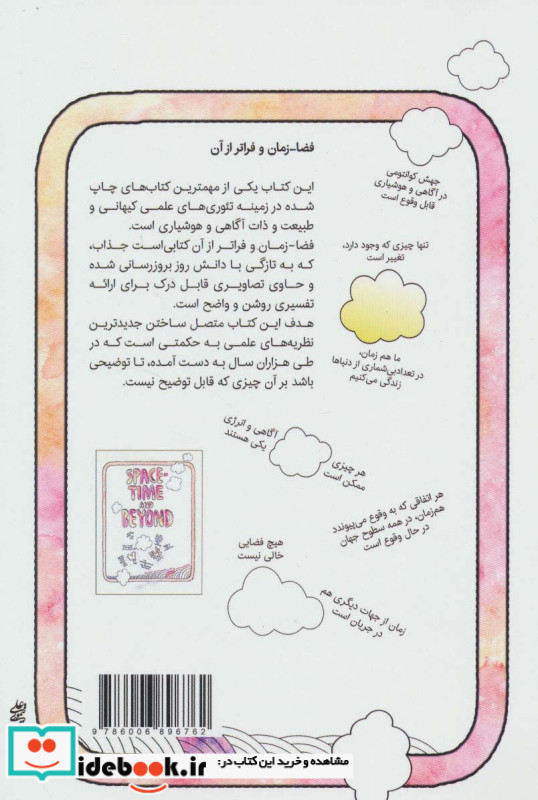 فضا-زمان و فراتر از آن
این کتاب یکی از مهمترین کتاب‌های چاپ
شده در زمینه تئوری‌های علمی کیهانی و
طبیعت و ذات آگاهی و هوشیاری است.
فضا-زمان و فراتر از آن کتابی‌است جذاب،
که به تازگی با دانش روز بروزرسانی شده
و حاوی تصاویری قابل درک برای ارائه
تفسیری روشن و واضح است.
هدف این کتاب متصل ساختن جدیدترین
نظریه‌های علمی به حکمتی است که در
طی هزاران سال به دست آمده، تا توضیحی
باشد بر آن چیزی که قابل توضیح نیست.
جهش کوانتومی
در آگاهی و هوشیاری
قابل وقوع است
تنها چیزی که وجود دارد،
تغییر است
ما هم زمان،
در تعداد‌بی‌شماری از دنیاها
زندگی می‌کنیم
آگاهی و انرژی
یکی هستند
هر چیزی
ممکن است
هر اتفاقی که به وقوع می‌پیوندد
هم‌زمان، در همه سطوح جهان
در حال وقوع است
هیچ فضایی
خالی نیست
زمان از جهات دیگری هم
در جریان است
SPACE-
TIME
AND
BEYOND
9 786006 896762
مشاهده و خرید این کتاب در:
idebook.ir